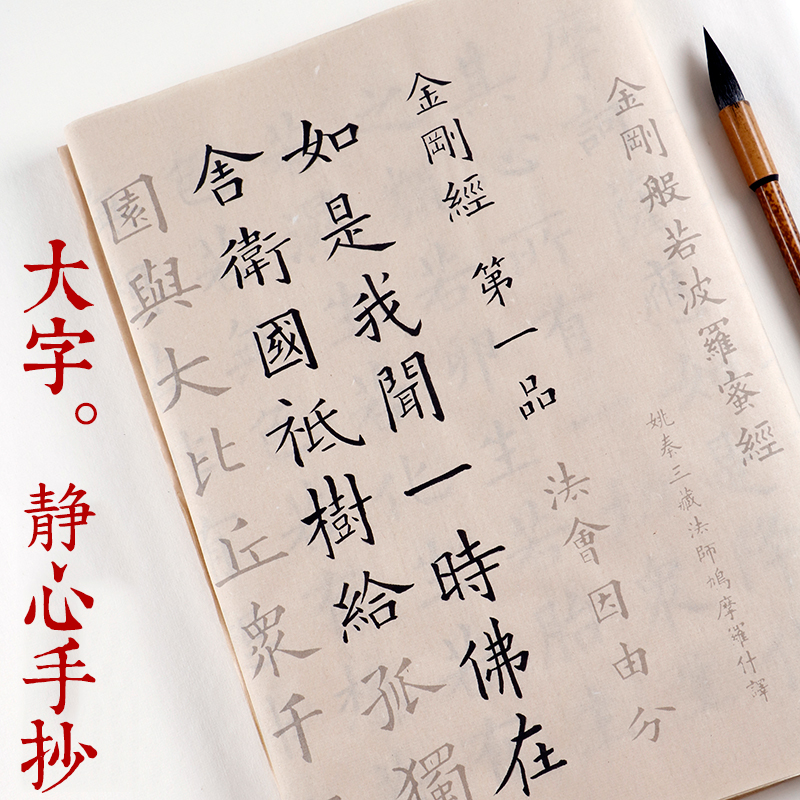 金剛般若波羅蜜經
姚秦三藏法師鳩摩羅什譯
金剛經 第一品 法會因由分
如是我聞一時佛在
舍衛國祇樹給孤獨
園與大比丘衆千
大字。
静心手抄